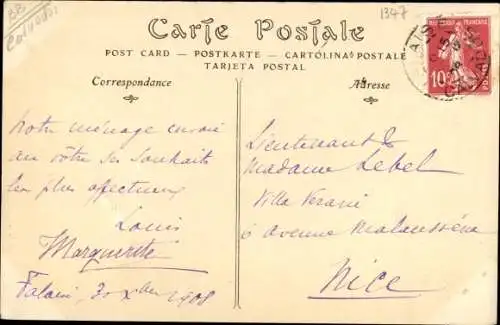 1347
88
Calvados
Carte Postale
POST CARD — POSTKARTE — CARTOLINA POSTALE
TARJETA POSTAL
Correspondance
Adresse
10
Notre ménage envoie
au vôtre ses souhaits
les plus affectueux
Louis
Marguerite
Falaise, 30 Xbre 1908
Lieutenant &
Madame Lebel
Villa
6 avenue Malausséna
Nice